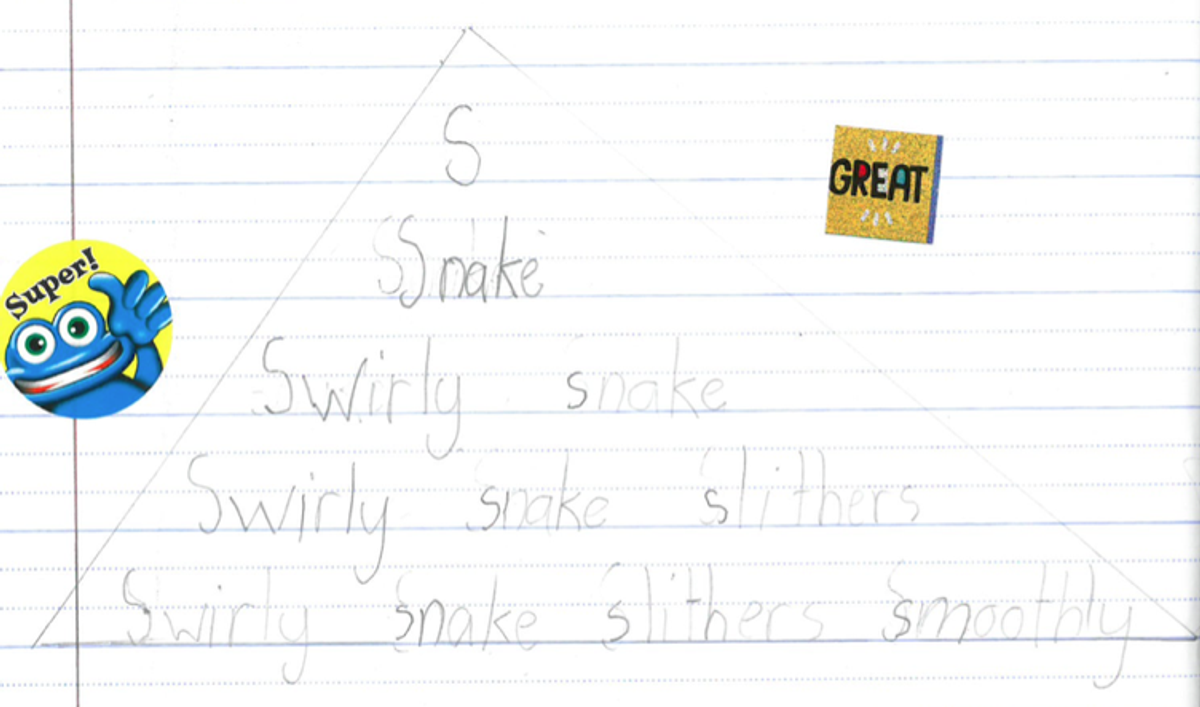 S
GREAT
Snake
Super!
Swirly snake
Swirly snake slithers
Swirly snake slithers smoothly